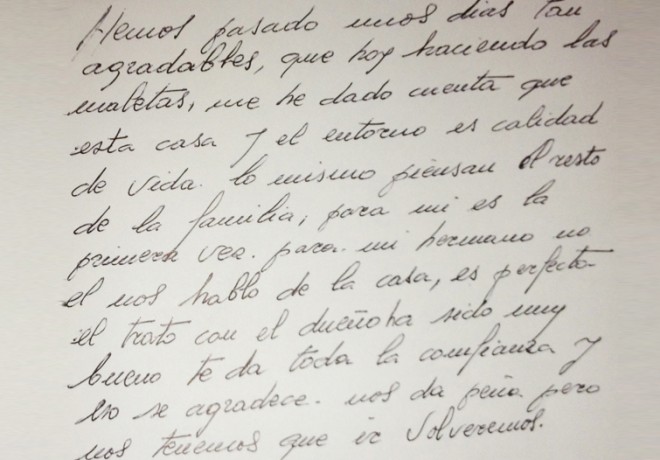 Hemos pasado unos dias tan
agradables, que hoy haciendo las
maletas, me he dado cuenta que
esta casa y el entorno es calidad
de vida. lo mismo piensan el resto
de la familia, para mi es la
primera vez. para mi hermano no
el nos hablo de la casa, es perfecta
el trato con el dueño ha sido muy
bueno te da toda la confianza y
eso se agradece. nos da peña pero
nos tenemos que ir Volveremos.